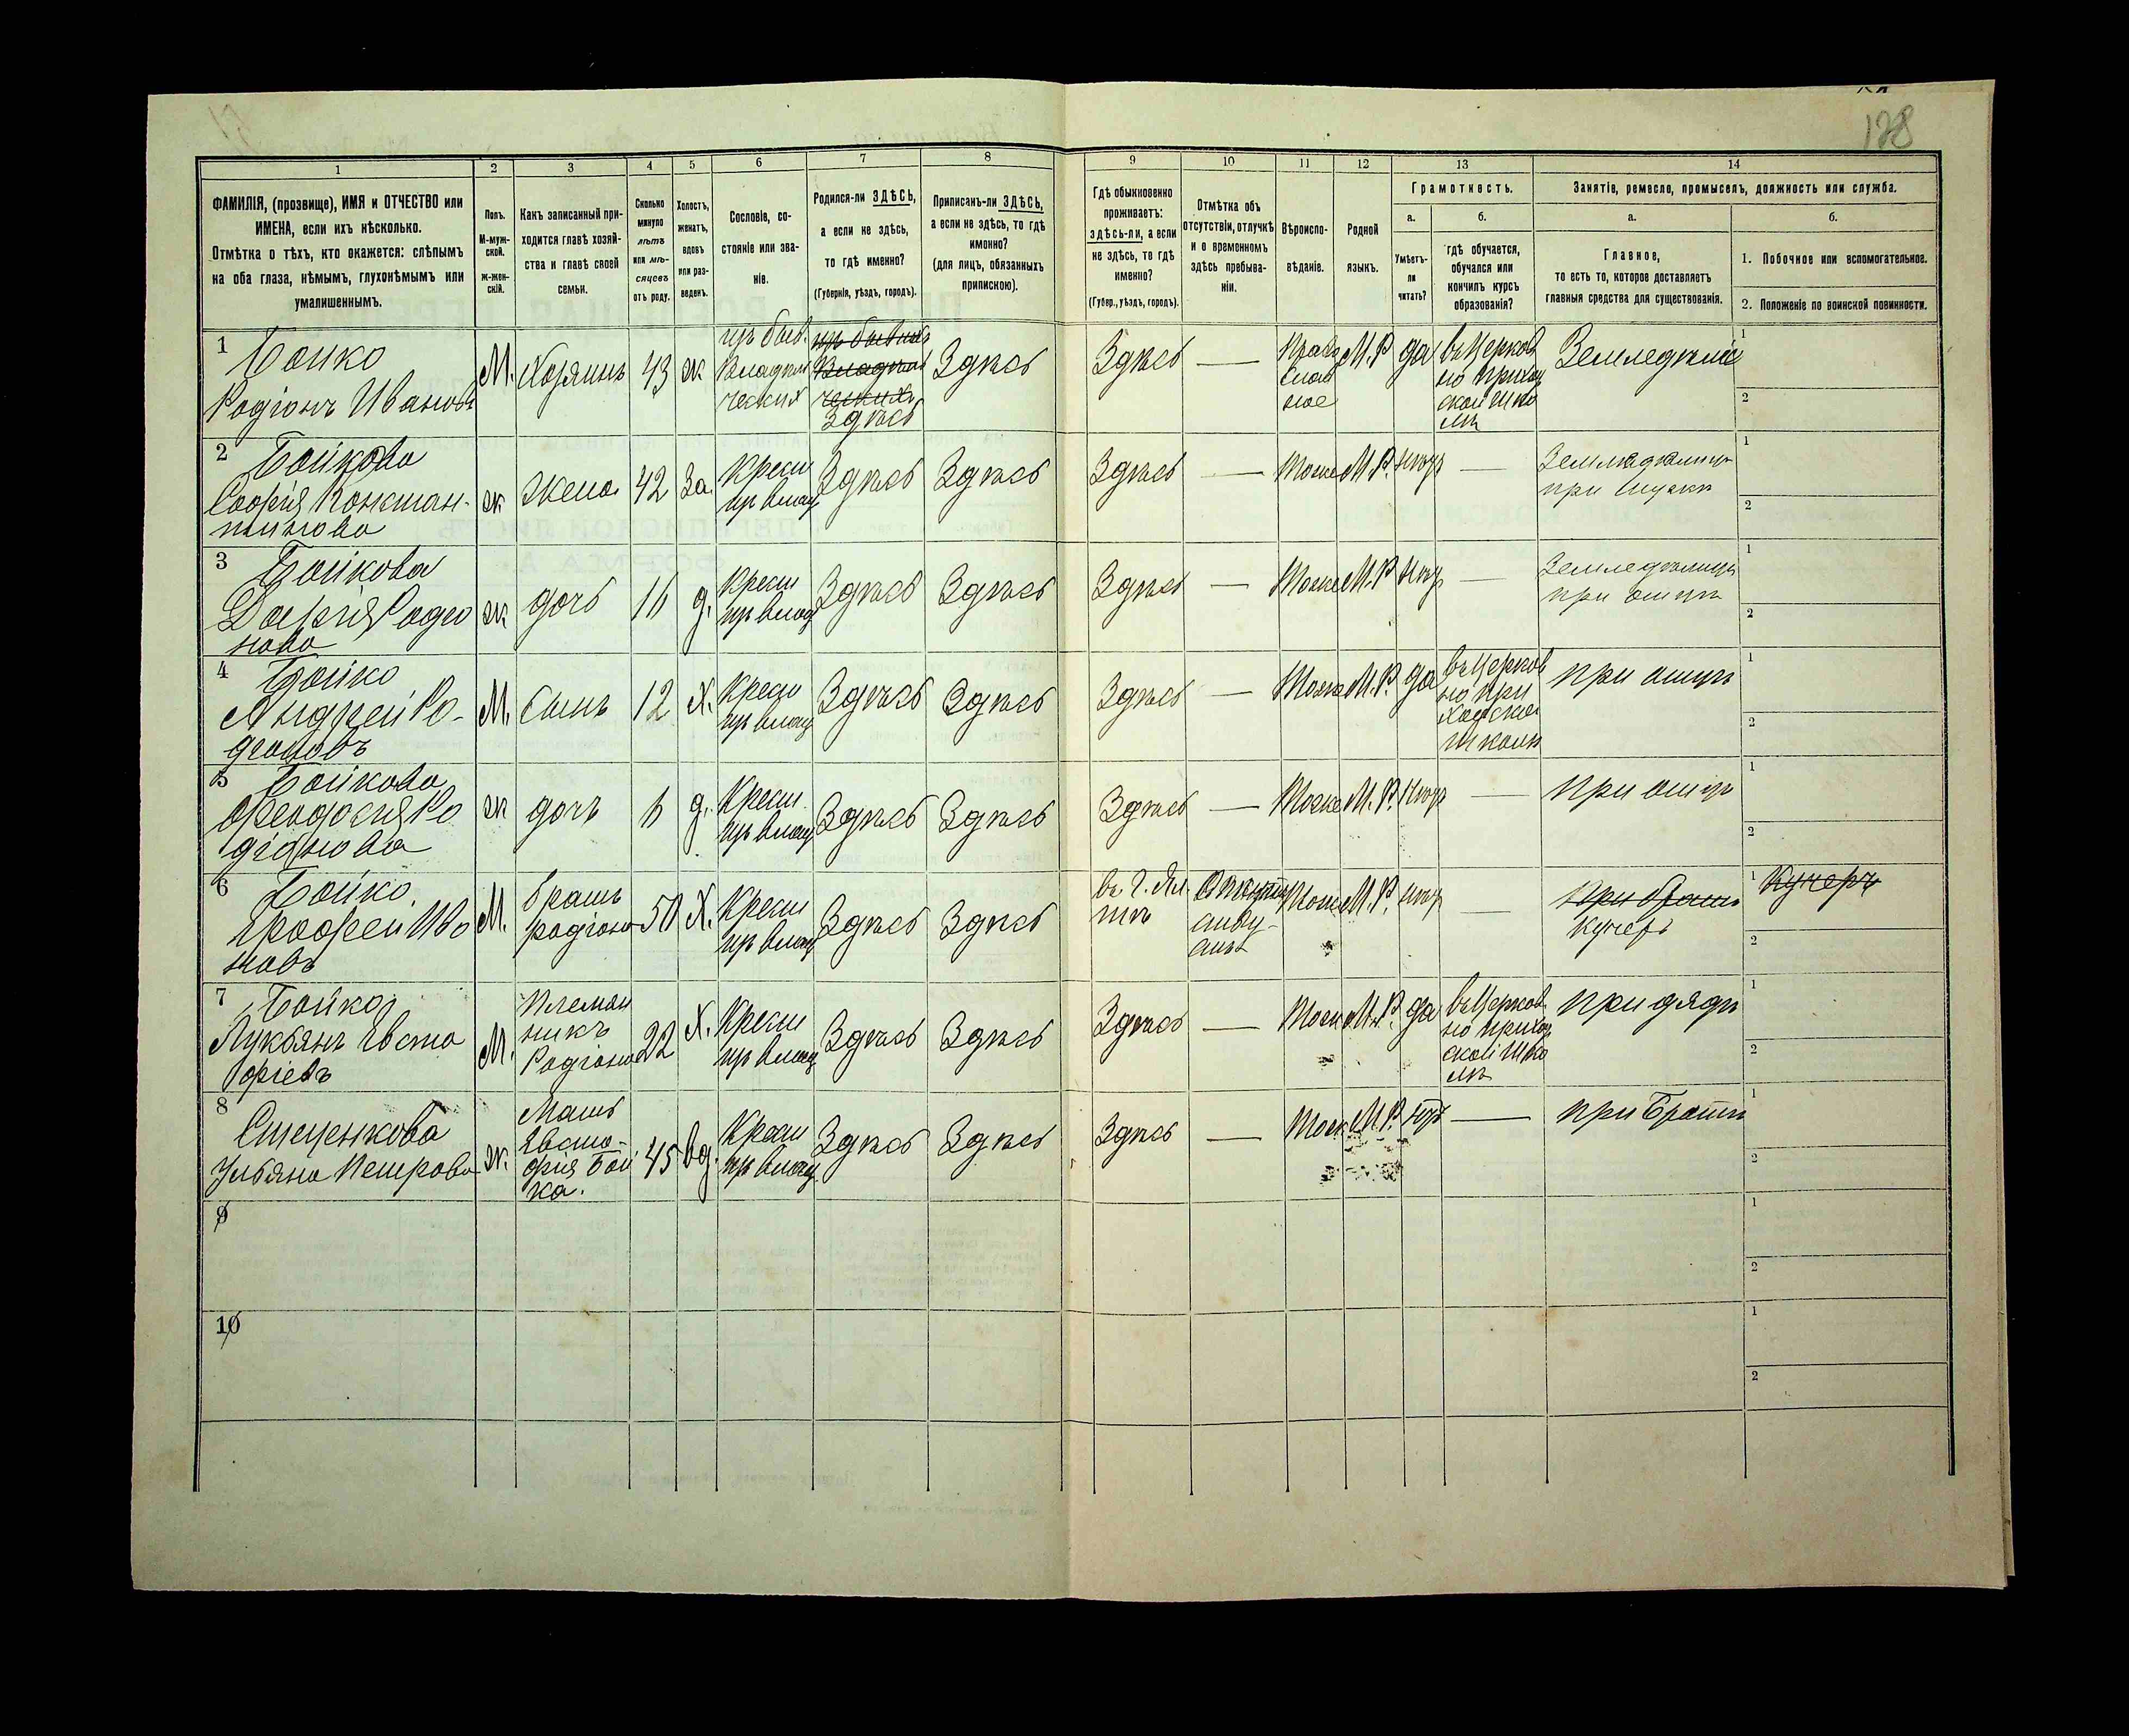 128
1 2 3 4 5 6 7 8 9 10 11 12 13 14
ФАМИЛІЯ, (прозвище), ИМЯ и ОТЧЕСТВО или
ИМЕНА, если ихъ нѣсколько.
Отмѣтка о тѣхъ, кто окажется: слѣпымъ
на оба глаза, нѣмымъ, глухонѣмымъ или
умалишеннымъ.
Полъ.
М-муж-
ской.
ж-жен-
скій.
Какъ записанный при-
ходится главѣ хозяй-
ства и главѣ своей
семьи.
Сколько
минуло
лѣтъ
или мѣ-
сяцевъ
отъ роду.
Холостъ,
женатъ,
вдовъ
или раз-
веденъ.
Сословіе, со-
стояніе или зва-
ніе.
Родился-ли ЗДѢСЬ,
а если не здѣсь,
то гдѣ именно?
(Губернія, уѣздъ, городъ).
Приписанъ-ли ЗДѢСЬ,
а если не здѣсь, то гдѣ
именно?
(для лицъ, обязанныхъ
припискою).
Гдѣ обыкновенно
проживаетъ:
здѣсь-ли, а если
не здѣсь, то гдѣ
именно?
(Губер., уѣздъ, городъ).
Отмѣтка объ
отсутствіи, отлучкѣ
и о временномъ
здѣсь пребыва-
ніи.
Вѣроиспо-
вѣданіе.
Родной
языкъ.
Грамотность.
а.
Умѣетъ-
ли
читать?
б.
гдѣ обучается,
обучался или
кончилъ курсъ
образованія?
Занятіе, ремесло, промыселъ, должность или служба.
а.
Главное,
то есть то, которое доставляетъ
главныя средства для существованія.
б.
1. Побочное или вспомогательное.
2. Положеніе по воинской повинности.
1 Бойко
Родіонъ Ивановъ
М. Хозяинъ 43 ж
изъ быв.
Владѣль
ческихъ
изъ бывшихъ
Владѣль
ческихъ
Здѣсь
Здѣсь
Здѣсь —
Право
слав
ное
М.Р да
въ Церков
но приход
ской Шко
лѣ
Земледѣліе
1
2
2 Бойкова
Софія Констан-
тинова
ж Жена 42 За.
Крест
изъ влад
Здѣсь Здѣсь Здѣсь — Тоже М.Р. нѣтъ —
Земледѣлица
при мужѣ
1
2
3 Бойкова
Дарія Родіо
нова
ж дочь 16 д.
Крест
изъ влад
Здѣсь Здѣсь Здѣсь — Тоже М.Р нѣтъ —
Земледѣлица
при отцѣ
1
2
4 Бойко
Андрей Ро-
діоновъ
М. Сынъ 12 Х.
Крест
изъ влад
Здѣсь Здѣсь Здѣсь — Тоже М.Р. да
въ Церков
но при
ходской
школѣ
при отцѣ
1
2
5 Бойкова
Феодосія Ро
діонова
ж дочь 6 д.
Крест
изъ влад
Здѣсь Здѣсь Здѣсь — Тоже М.Р. нѣтъ — при отцѣ
1
2
6 Бойко
Ерофей Ива
новъ
М.
братъ
родіона
50 Х.
Крест
изъ влад
Здѣсь Здѣсь
въ г. Ял
тѣ
Тоже М.Р. нѣтъ —
при братѣ
кучеръ
1 Кучеръ
2
7 Бойко
Лукьянъ Евста
фіевъ
М.
Племян
никъ
Родіона
22 Х.
Крест
изъ влад
Здѣсь Здѣсь Здѣсь — Тоже М.Р. да
въ Церков
но приход
ской Шко
лѣ
при дядѣ
1
2
8
Ульяна Петрова
ж.
Мать
Евста-
фія Бой
ка.
45 вд.
Крест
изъ влад
Здѣсь Здѣсь Здѣсь — Тоже М.Р. нѣтъ — при Братѣ
1
2
9
1
2
10
1
2